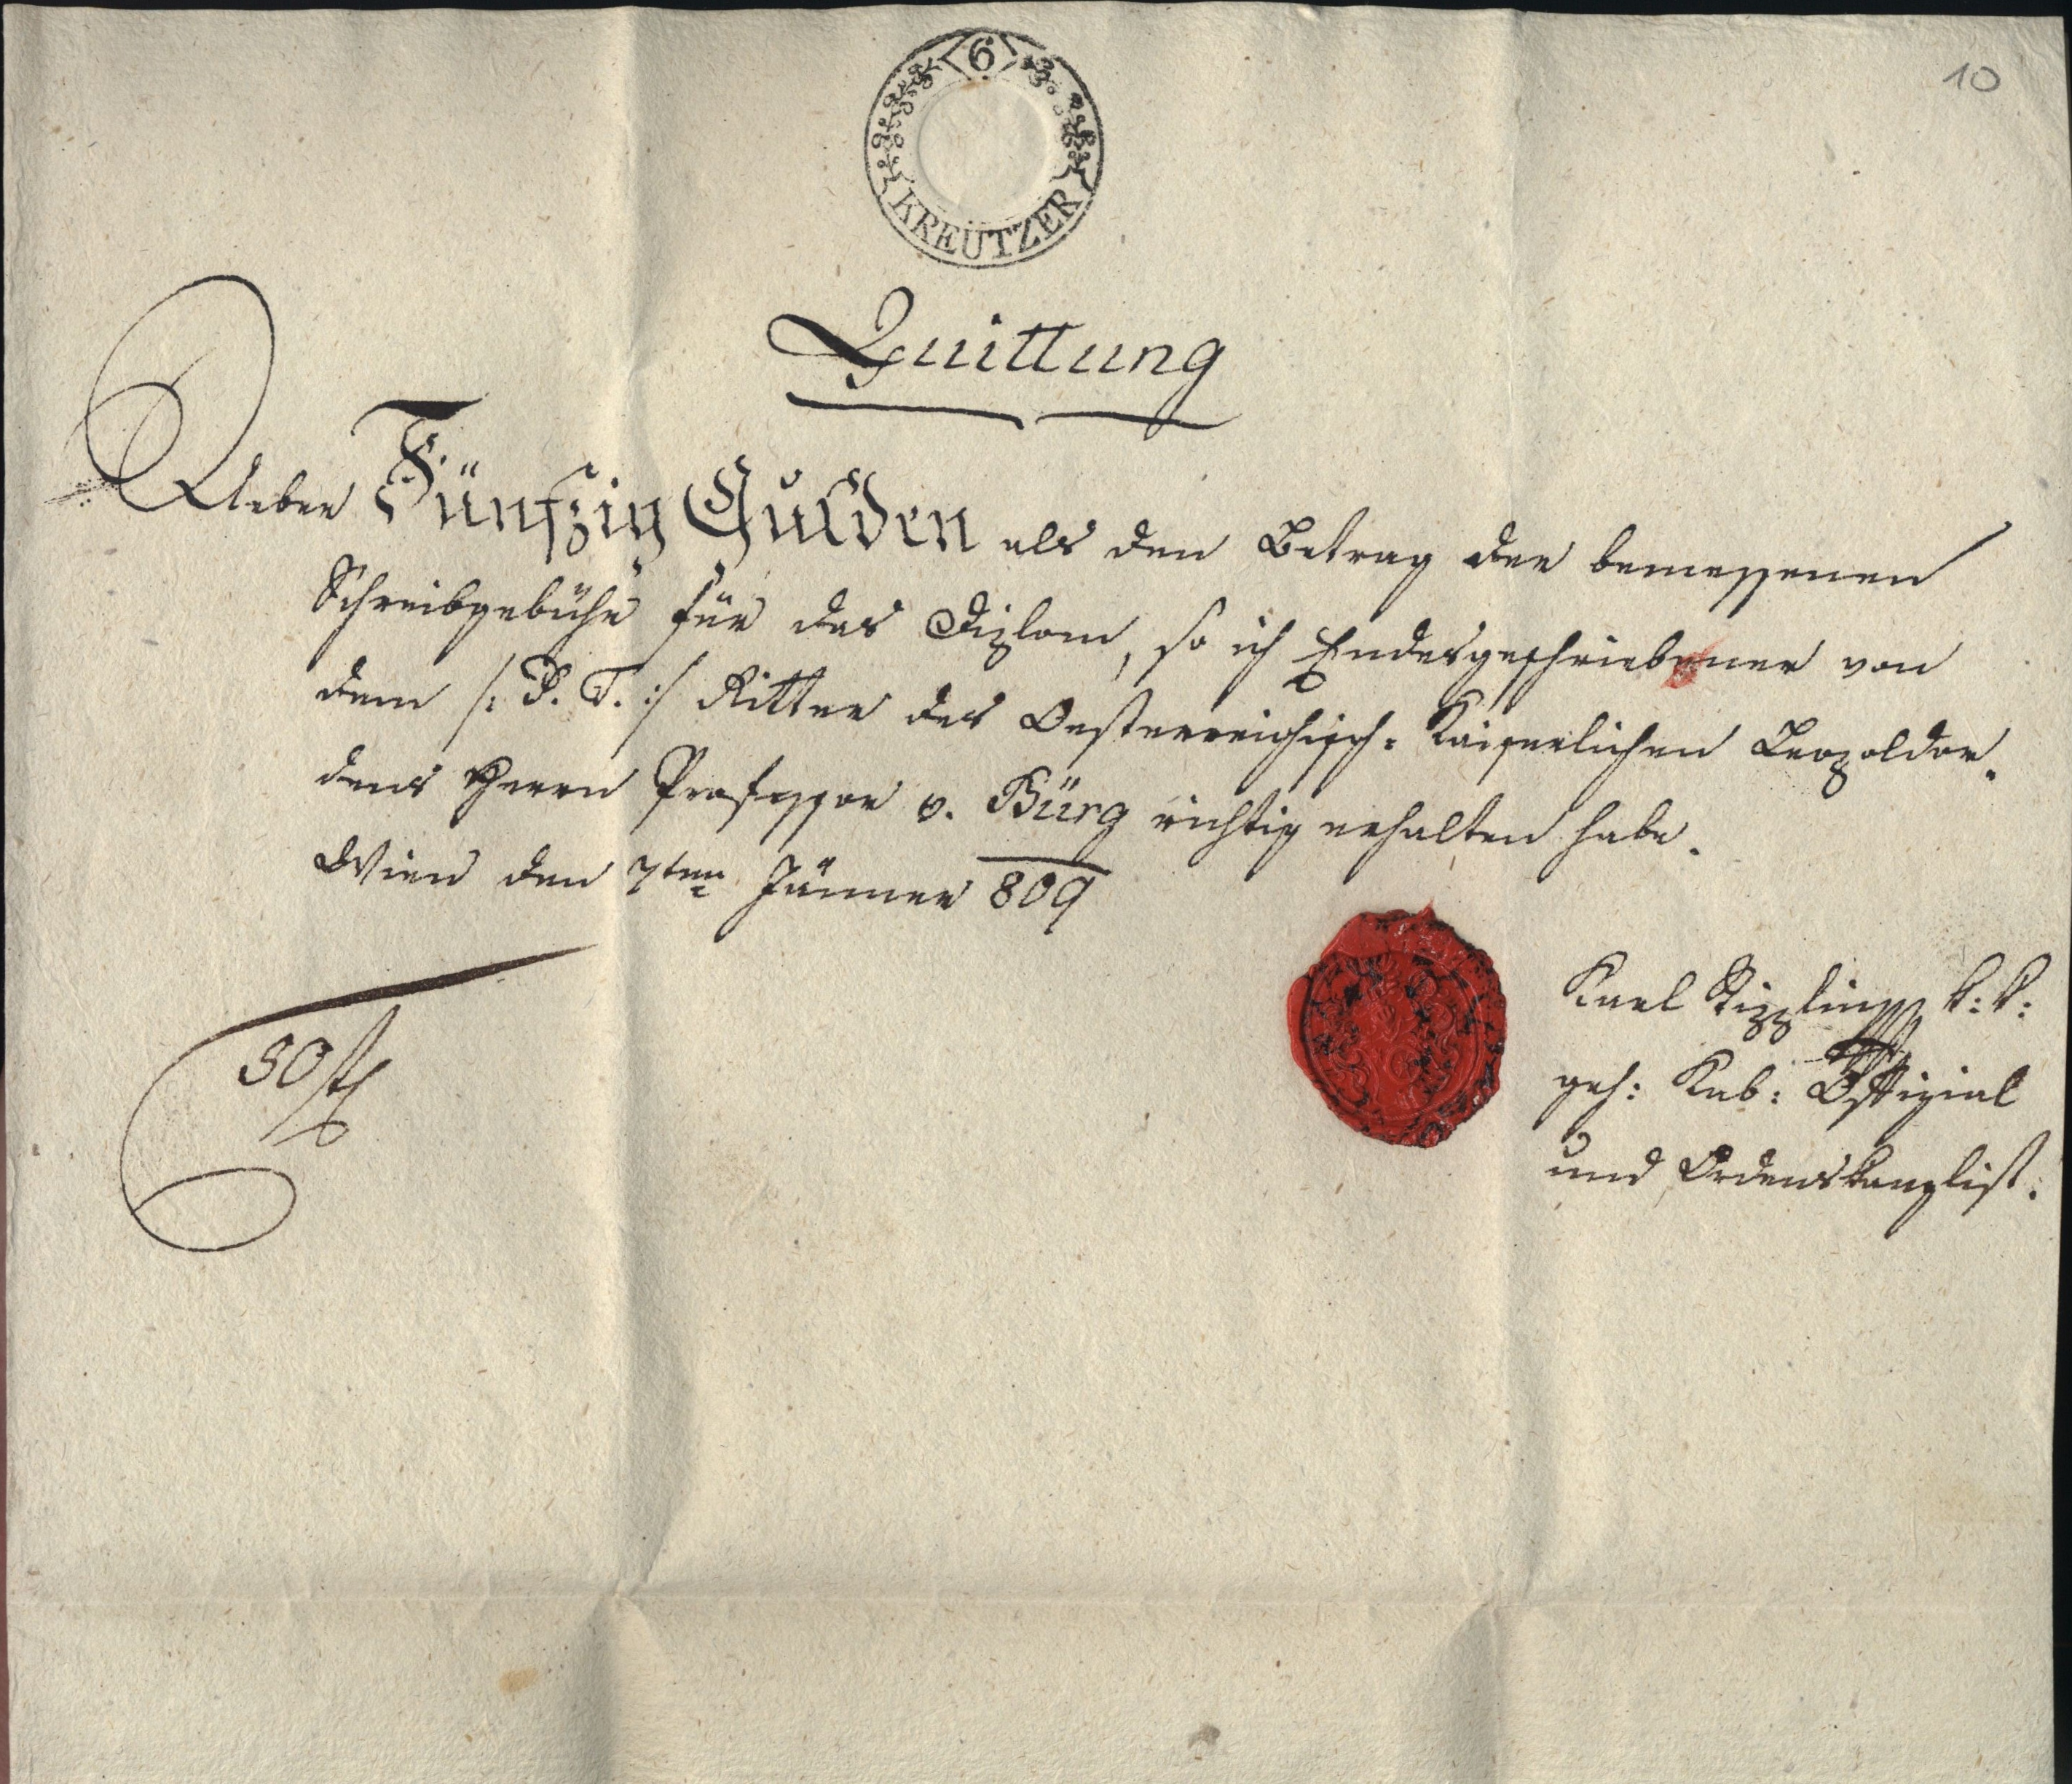 10
6
KREUTZER
Quittung
Ueber Fünfzig Gulden als den Betrag der bemessenen
Schreibgebühr für das Diplom, so ich Endesgeschriebener von
dem /: P. T. :/ Ritter des Oesterreichisch-Kaiserlichen Leopoldor-
dens Herrn Professor v. Bürg richtig erhalten habe.
Wien den 7ten Jänner 809
50 f
Karl k: k:
geh: Kab: Offizial
und Ordenskanzlist.